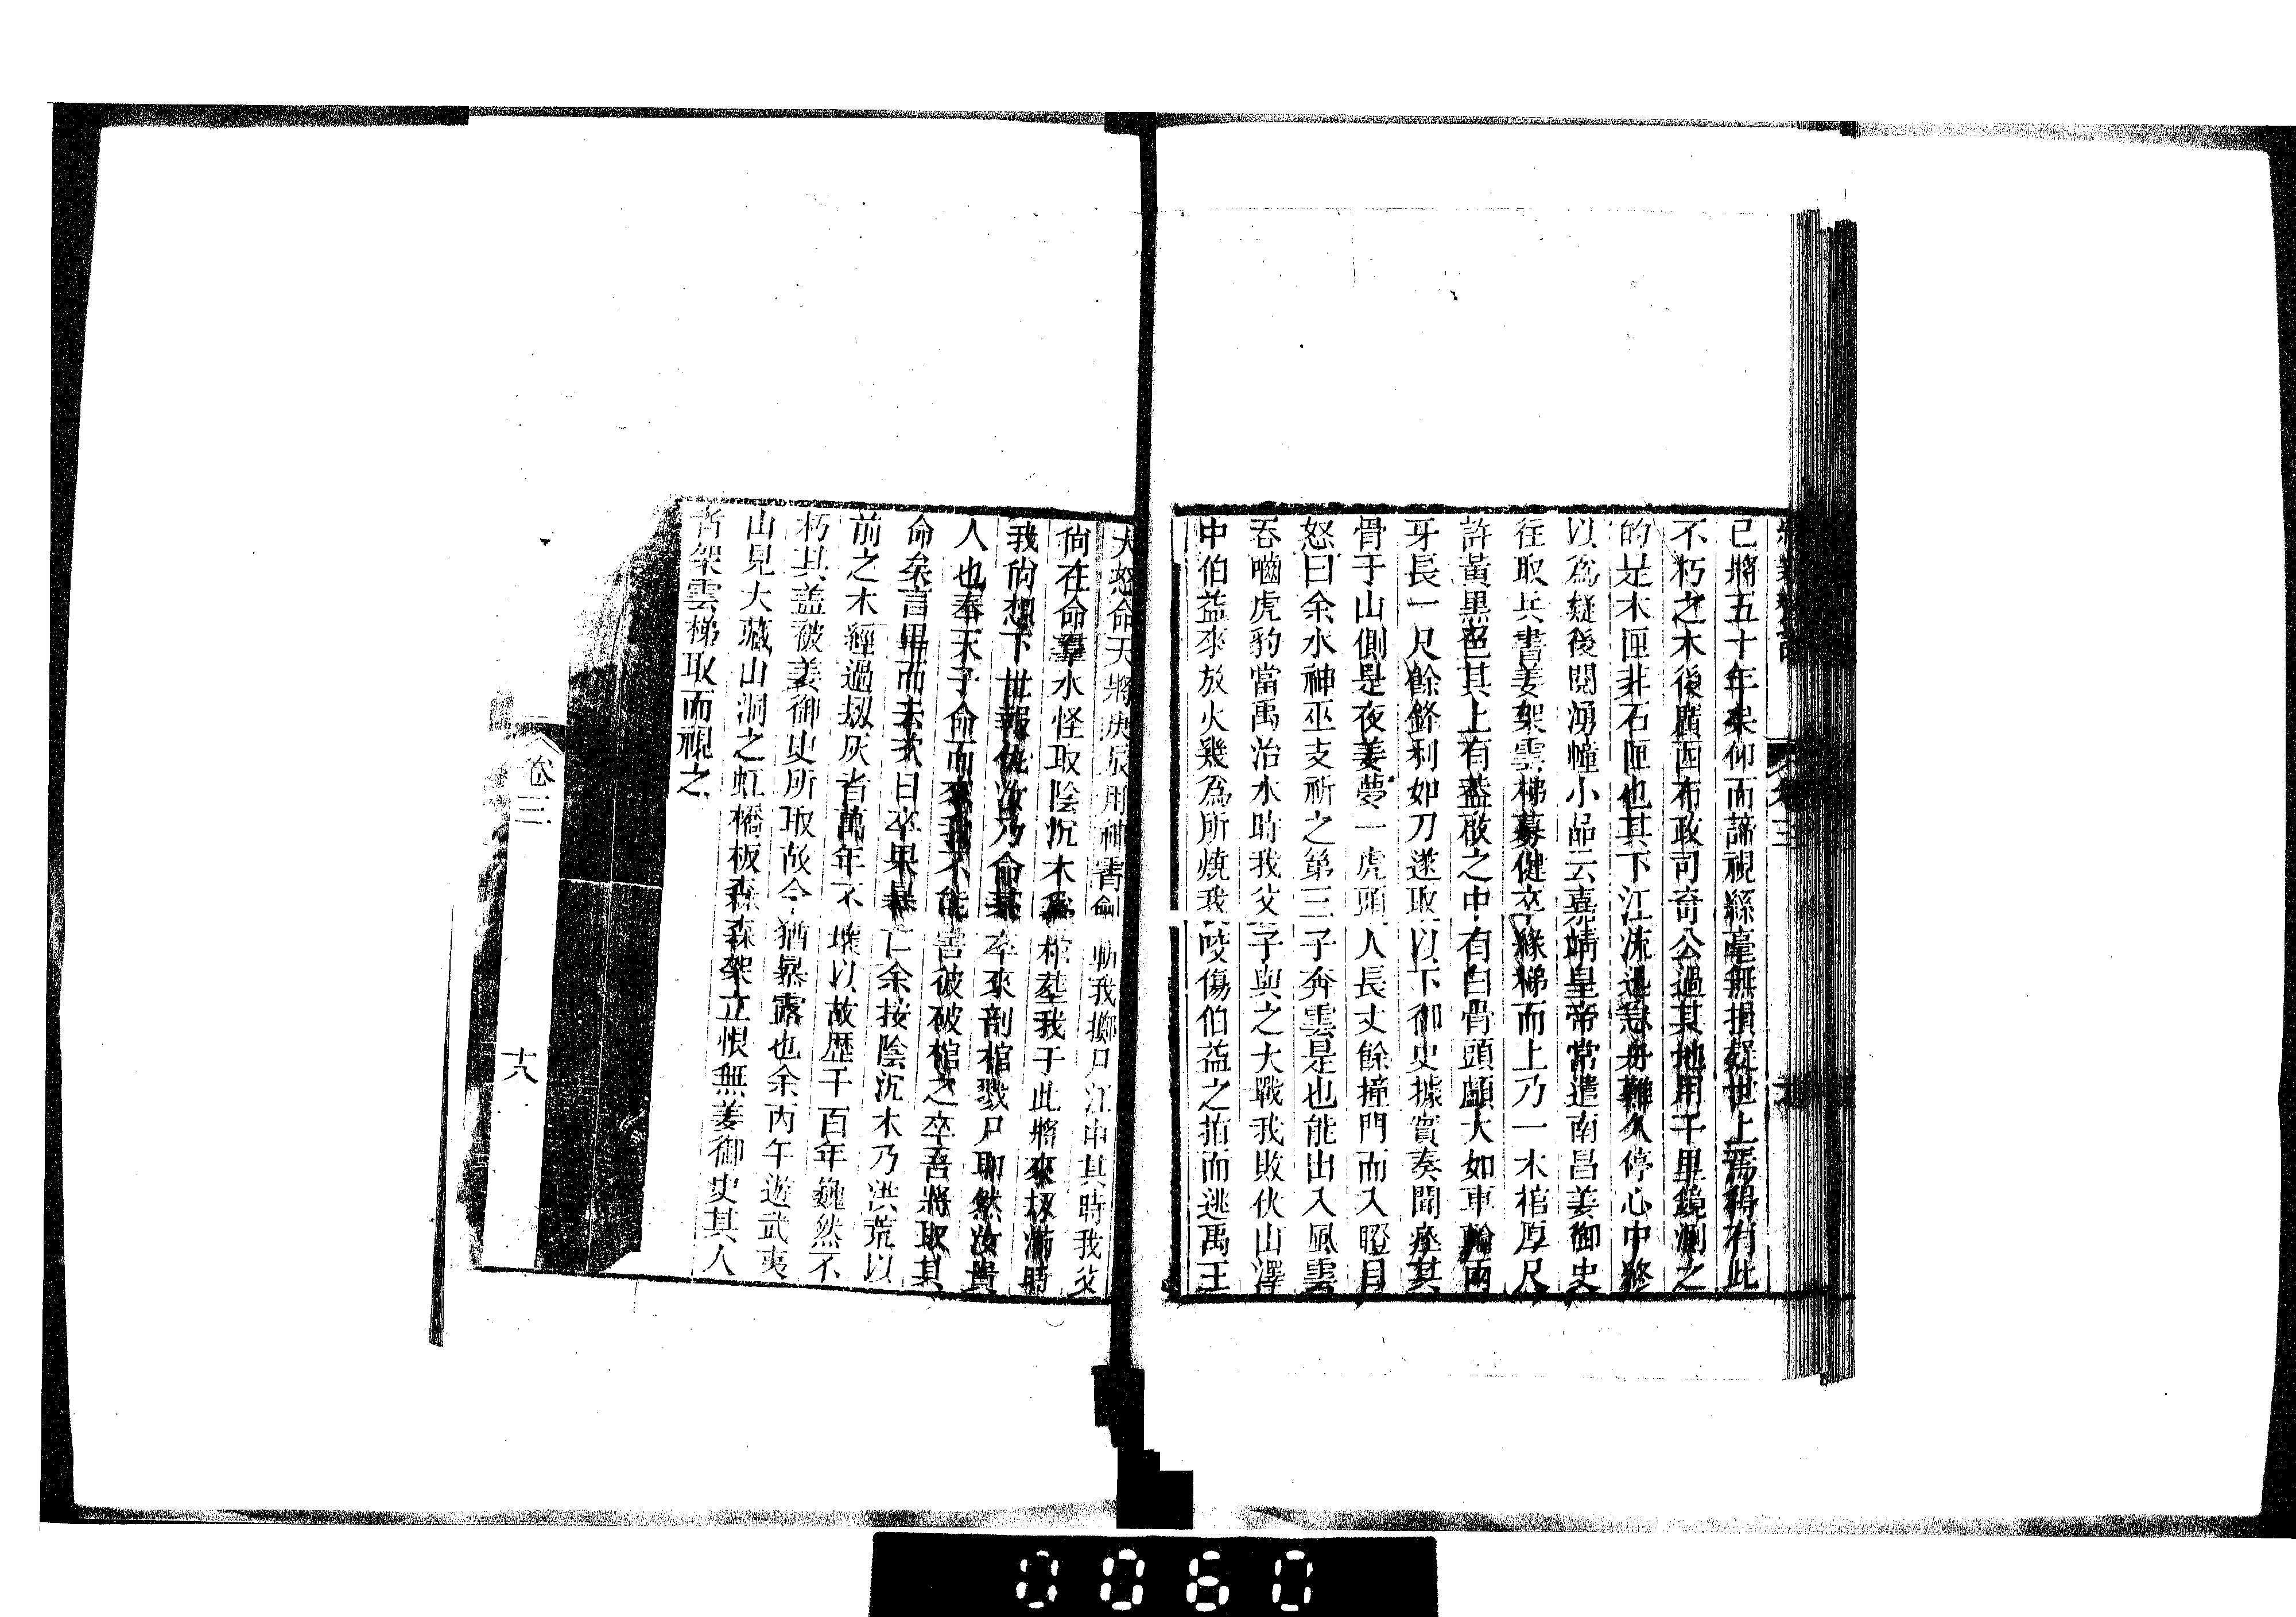 已將五十年矣仰而諦視絲毫無損疑世上焉得有此
不朽之木後廣西布政司奇公過其地用千里鏡測之
的是木匣非石匣也其下江流迅急舟難久停心中終
以為疑後閱湧幢小品云嘉靖皇帝常遣南昌姜御史
往取兵書姜架雲梯募健卒緣梯而上乃一木棺厚尺
許黃黑色其上有蓋啟之中有白骨頭顱大如車輪兩
牙長一尺餘鋒利如刀遂取以下御史據實奏聞瘞其
骨于山側是夜姜夢一虎頭人長丈餘撞門而入瞪目
怒曰余水神巫支祈之第三子奔雲是也能出入風雲
吞嚙虎豹當禹治水時我父子與之大戰我敗伏山澤
中伯益來放火幾為所燒我咬傷伯益之指而逃禹王
大怒命天將庚辰用神霄劍斬我擲尸江中其時我父
尚在命羣水怪取陰沉木為棺塟我于此將來刼滿時
我尚想下世報仇汝乃命某卒來剖棺戮尸耶然汝貴
人也奉天子命而來我不能害彼破棺之卒吾將取其
命矣言畢而去次日卒果暴亡余按陰沉木乃洪荒以
前之木經過刼灰者萬年不壞以故歷千百年巍然不
朽其盖被姜御史所取故今猶暴露也余丙午遊武夷
山見大藏山洞之虹橋板森森架立恨無姜御史其人
者架雲梯取而視之
卷三
十八
0060